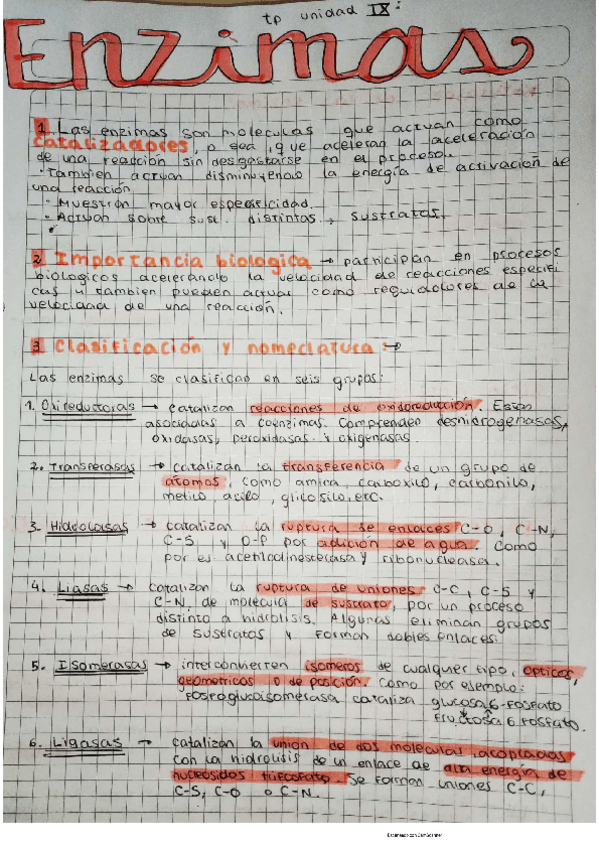 tp unidad IX:
Enzimas
1. Las enzimas son moleculas que actuan como
catalizadores, o sea, que aceleran la aceleración
de una reacción sin desgastarse en el proceso.
· Tambien actuan disminuyendo la energía de activación de
una reacción
· Muestran mayor especificidad.
· Actuan sobre sust. distintas, sustratos.
2 Importancia biologica → participan en procesos
biologicos acelerando la velocidad de reacciones especifi
cas y tambien pueden actuar como reguladores de la
velocidad de una reacción.
3 Clasificación y nomeclatura :→
Las enzimas se clasifican en seis grupos:
1. Oxireductoras → catalizan reacciones de oxidoreducción. Estan
asociadas a coenzimas. Comprenden deshidrogenasas,
oxidasas, peroxidasas y oxigenasas.
2. Transferasas → catalizan la transferencia de un grupo de
atomos, como amina, carboxilo, carbonilo,
metilo, acilo, glicosilo, etc.
3. Hidrolasas → catalizan la ruptura de enlaces C-O, C-N,
C-S y O-P por adición de agua. Como
por ej acetilcolinesterasa y ribonucleasa.
4. Liasas → catalizan la ruptura de uniones C-C, C-S y
C-N, de molécula de sustrato, por un proceso
distinto a hidrólisis. Algunas eliminan grupos
de sustratos y forman dobles enlaces.
5. Isomerasas → interconvierten isomeros de cualquier tipo, opticos,
geometricos o de posición. Como por ejemplo:
Fosfoglucoisomerasa cataliza glucosa 6-fosfato
Fructosa 6 fosfato.
6. Ligasas → catalizan la union de dos moleculas, acopladas
con la hidrolisis de un enlace de alta energía de
nucleósidos trifosfato. Se forman uniones C-C,
C-S, C-O o C-N.
Escaneado con CamScanner